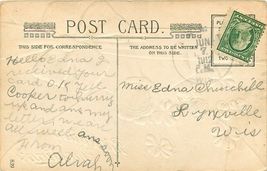 POST CARD.
THIS SIDE FOR CORRESPONDENCE
THE ADDRESS TO BE WRITTEN ON THIS SIDE.
JUN
7
1912
Hello Edna I
received your
card O.K. Tell
Cooper to hurry
up and ans my
letter,
All well ans soon
From
Alvah
Miss Edna Churchill
Lynxville
Wis